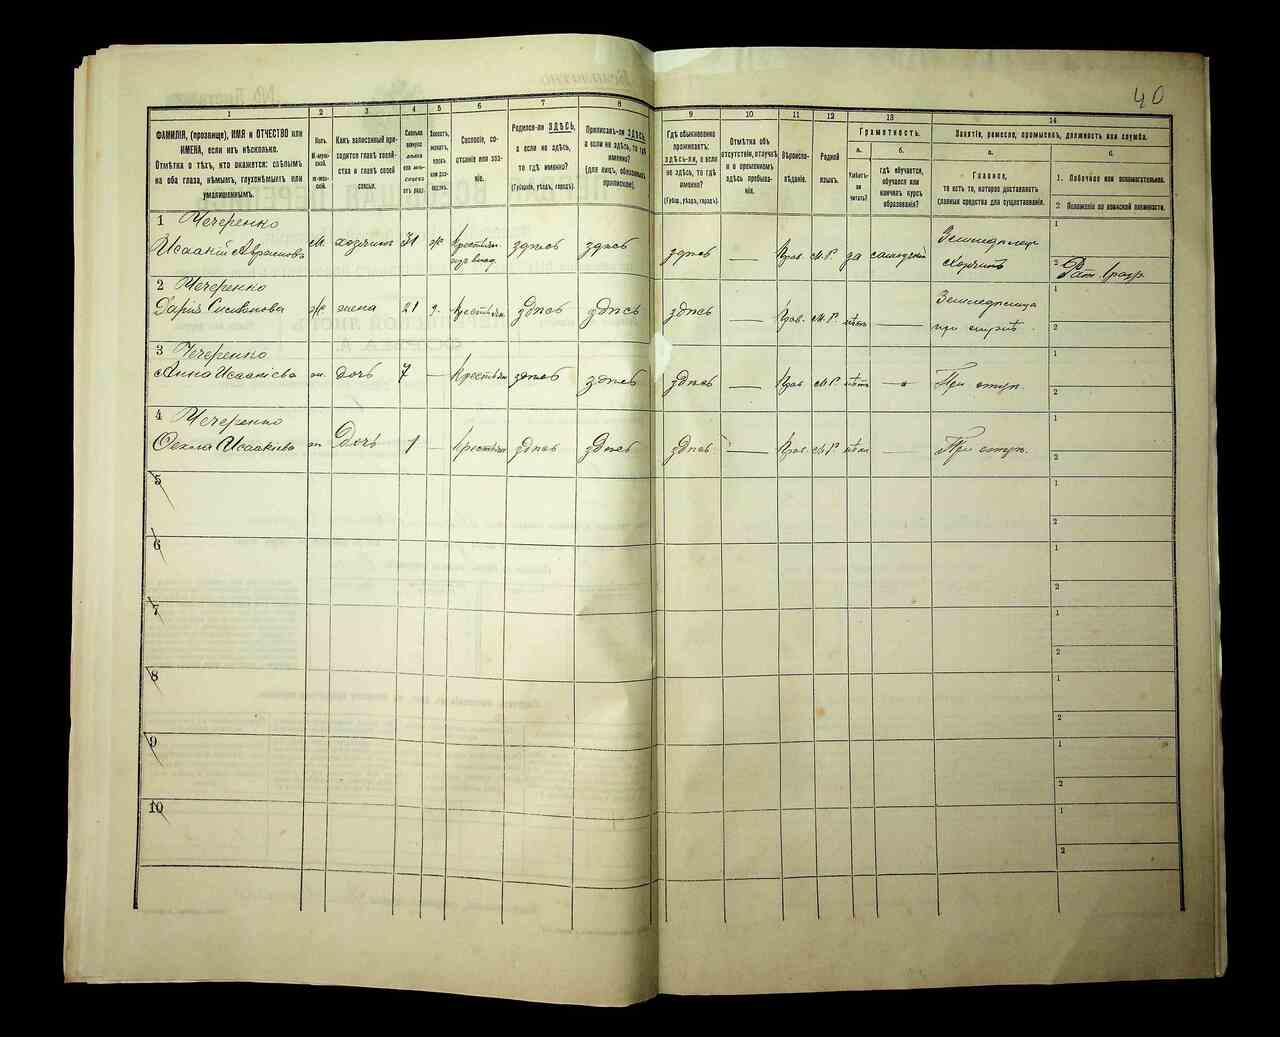 40
1
2
3
4
5
6
7
8
9
10
11
12
13
14
ФАМИЛІЯ, (прозвище), ИМЯ и ОТЧЕСТВО или
ИМЕНА, если ихъ нѣсколько.
Отмѣтка о тѣхъ, кто окажется: слѣпымъ
на оба глаза, нѣмымъ, глухонѣмымъ или
умалишеннымъ.
Полъ.
М-муж-
ской.
Ж-жен-
ской.
Какъ записанный при-
ходится главѣ хозяй-
ства и главѣ своей
семьи.
Сколько
минуло
лѣтъ
или мѣ-
сяцевъ
отъ роду.
Холостъ,
женатъ,
вдовъ
или раз-
веденъ.
Сословіе, со-
стояніе или зва-
ніе.
Родился-ли ЗДѢСЬ,
а если не здѣсь,
то гдѣ именно?
(Губернія, уѣздъ, городъ).
Приписанъ-ли ЗДѢСЬ,
а если не здѣсь, то гдѣ
именно?
(для лицъ, обязанныхъ
припискою).
Гдѣ обыкновенно
проживаетъ:
здѣсь-ли, а если
не здѣсь, то гдѣ
именно?
(Губер., уѣздъ, городъ).
Отмѣтка объ
отсутствіи, отлучкѣ
и о временномъ
здѣсь пребыва-
ніи.
Вѣроиспо-
вѣданіе.
Родной
языкъ.
Грамотность.
а.
б.
Умѣетъ-
ли
читать?
гдѣ обучается,
обучался или
кончилъ курсъ
образованія?
Занятіе, ремесло, промыселъ, должность или служба.
а.
б.
Главное,
то есть то, которое доставляетъ
главныя средства для существованія.
1. Побочное или вспомогательное.
2. Положеніе по воинской повинности.
1 Чечеренко
Исаакій Аврамовъ
М.
хозяинъ
31
ж
Крестьян.
здѣсь
здѣсь
здѣсь
—
Прав.
М.Р.
да
Земледѣлецъ
Хозяинъ
1
2
2 Чечеренко
Дарія
Ж
жена
21
з.
Крестьян
здѣсь
здѣсь
здѣсь
—
Прав.
М.Р.
нѣтъ
—
1
2
3 Чечеренко
Анна Исаакіева
ж.
дочь
7
—
Крестьян
здѣсь
здѣсь
здѣсь
—
Прав
М.Р
нѣтъ
—
1
2
4 Чечеренко
Исаакіева
ж
Дочь
1
—
Крестьян
здѣсь
здѣсь
здѣсь
—
Прав.
М.Р
нѣтъ
—
1
2
5
1
2
6
1
2
7
1
2
8
1
2
9
1
2
10
1
2